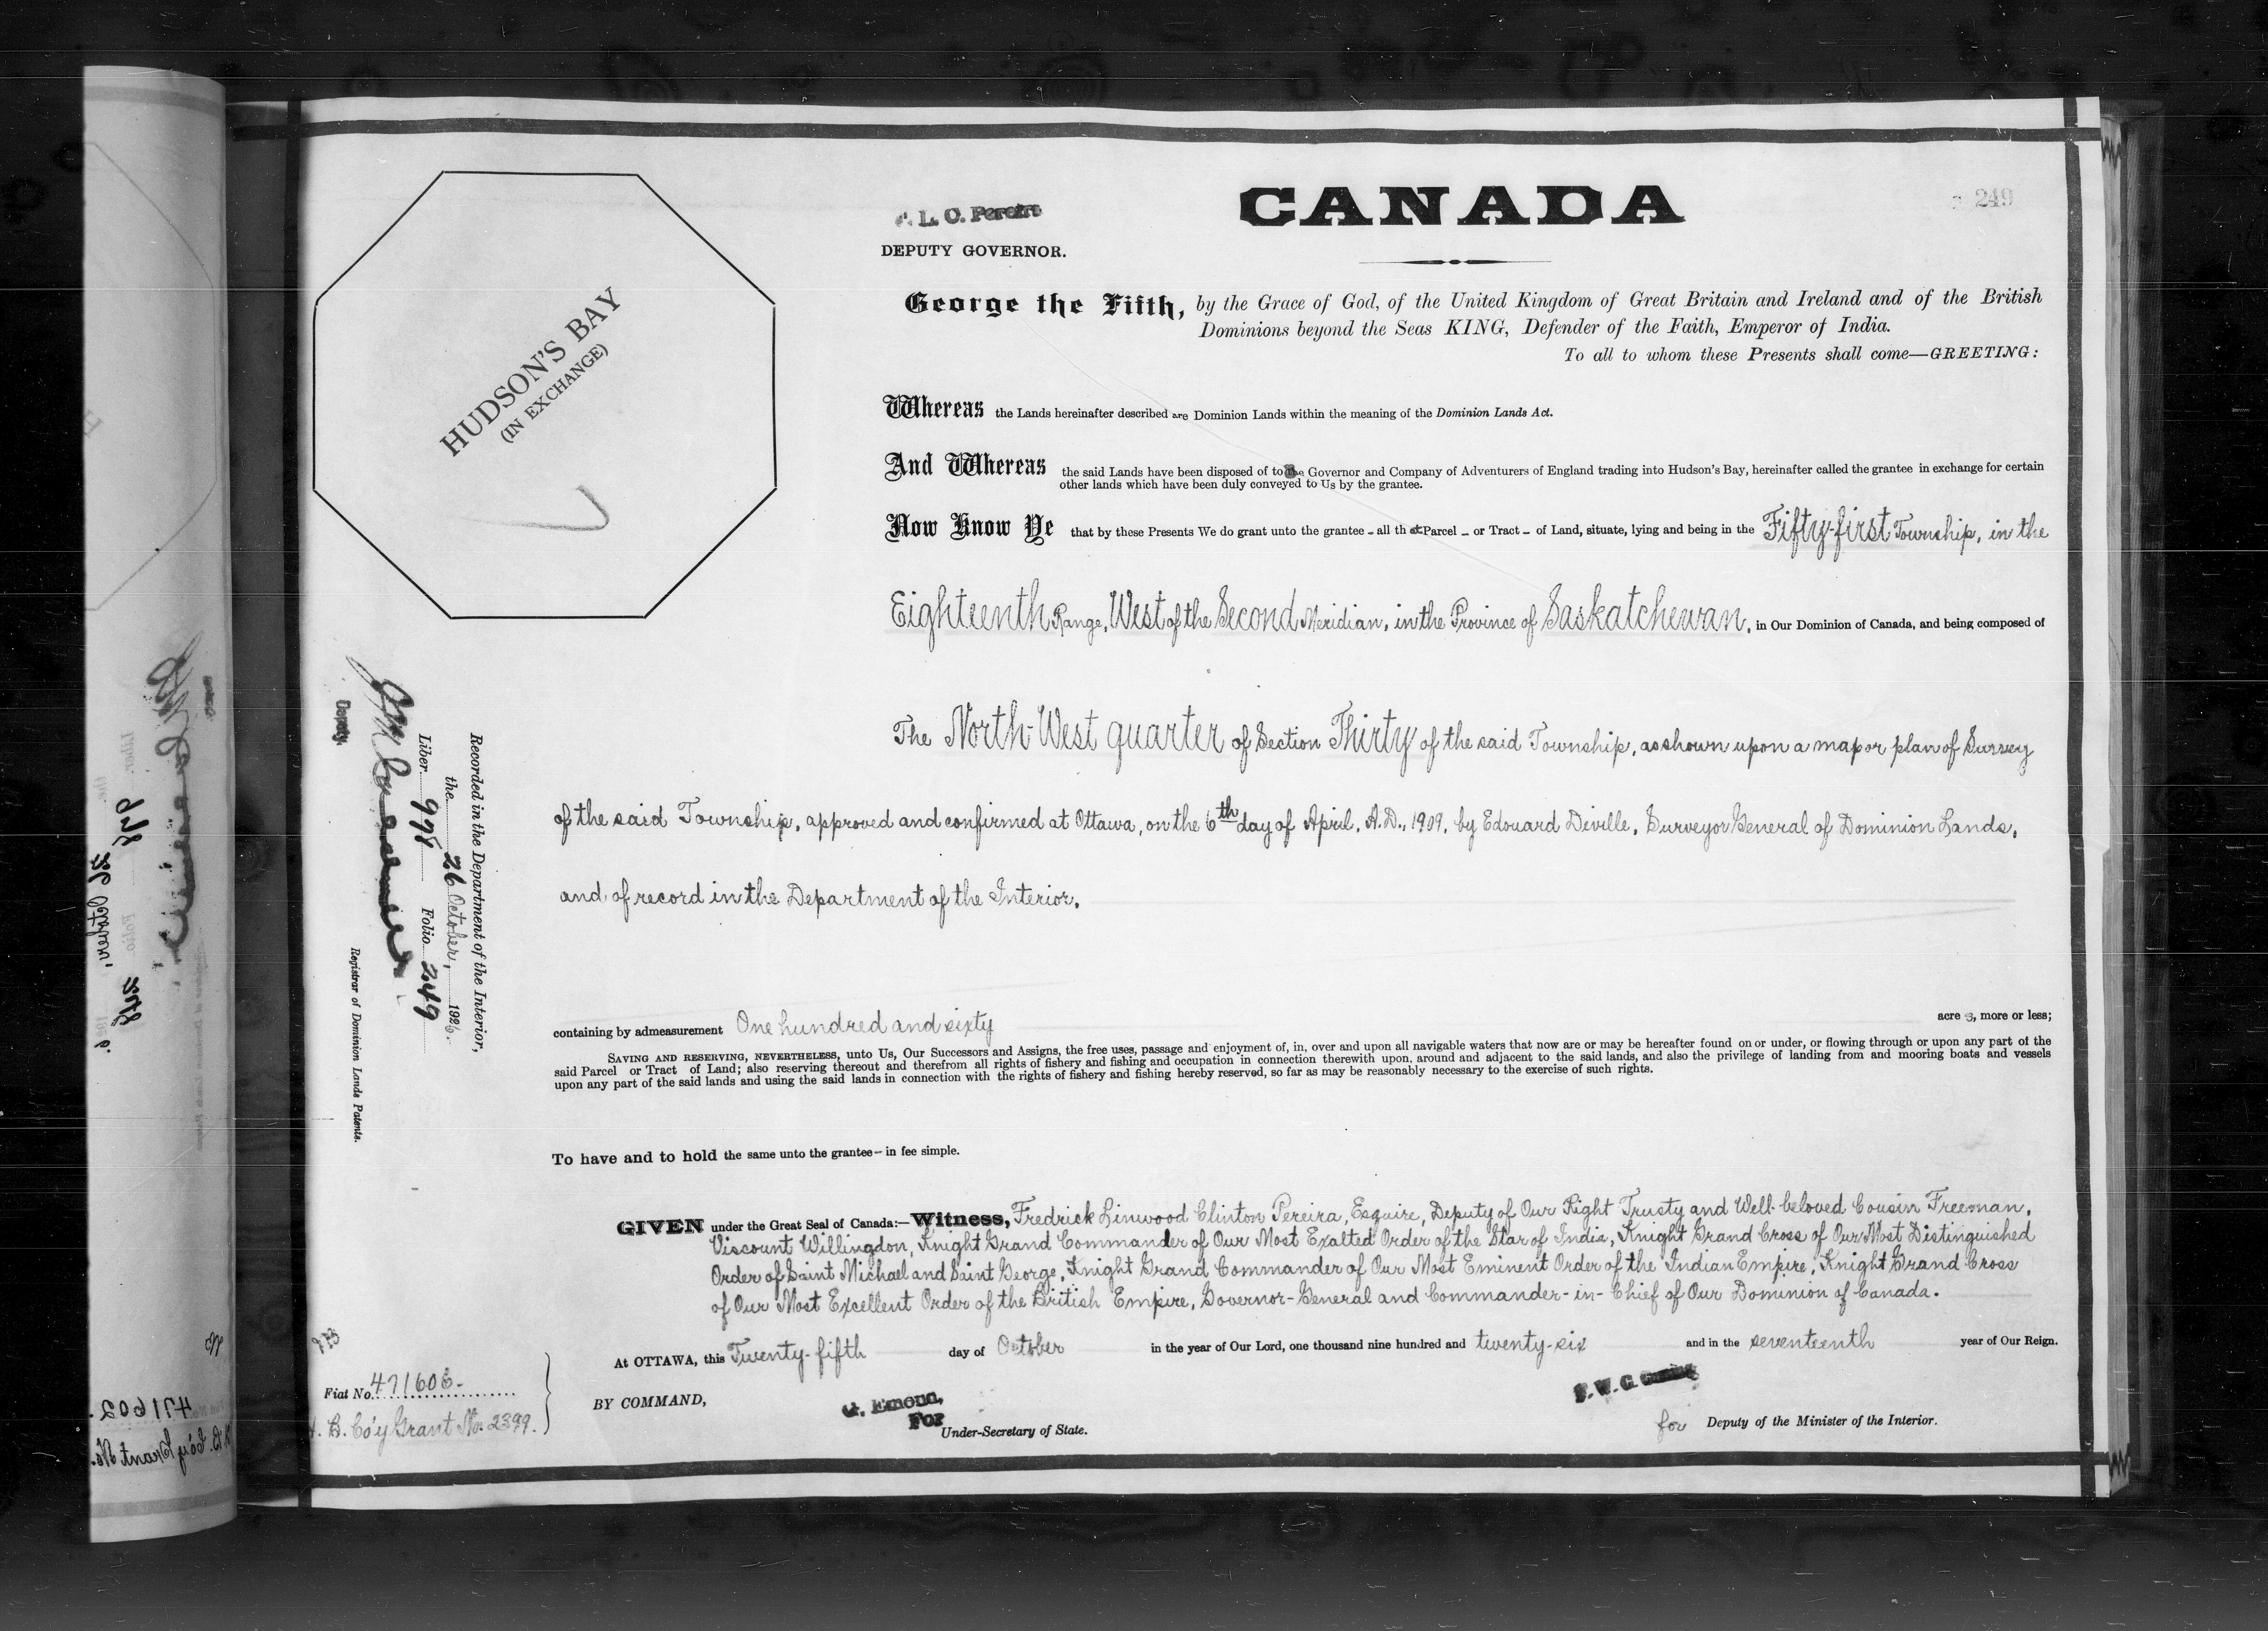 249
CANADA
F. L. C. Pereira
DEPUTY GOVERNOR.
HUDSON'S BAY
(IN EXCHANGE)
George the Fifth, by the Grace of God, of the United Kingdom of Great Britain and Ireland and of the British
Dominions beyond the Seas KING, Defender of the Faith, Emperor of India.
To all to whom these Presents shall come—GREETING:
Whereas the Lands hereinafter described are Dominion Lands within the meaning of the Dominion Lands Act.
And Whereas the said Lands have been disposed of to the Governor and Company of Adventurers of England trading into Hudson's Bay, hereinafter called the grantee in exchange for certain
other lands which have been duly conveyed to Us by the grantee.
Now Know Ye that by these Presents We do grant unto the grantee - all that Parcel - or Tract - of Land, situate, lying and being in the Fifty-first Township, in the
Eighteenth Range, West of the Second Meridian, in the Province of Saskatchewan, in Our Dominion of Canada, and being composed of
The North-West quarter of Section Thirty of the said Township, as shown upon a map or plan of Survey
of the said Township, approved and confirmed at Ottawa, on the 6th day of April, A.D., 1909, by Edouard Deville, Surveyor General of Dominion Lands,
and of record in the Department of the Interior.
containing by admeasurement One hundred and sixty acres, more or less;
SAVING AND RESERVING, NEVERTHELESS, unto Us, Our Successors and Assigns, the free uses, passage and enjoyment of, in, over and upon all navigable waters that now are or may be hereafter found on or under, or flowing through or upon any part of the
said Parcel or Tract of Land; also reserving thereout and therefrom all rights of fishery and fishing and occupation in connection therewith upon, around and adjacent to the said lands, and also the privilege of landing from and mooring boats and vessels
upon any part of the said lands and using the said lands in connection with the rights of fishery and fishing hereby reserved, so far as may be reasonably necessary to the exercise of such rights.
To have and to hold the same unto the grantee - in fee simple.
GIVEN under the Great Seal of Canada:—Witness, Fredrick Linwood Clinton Pereira, Esquire, Deputy of Our Right Trusty and Well-beloved Cousin Freeman,
Viscount Willingdon, Knight Grand Commander of Our Most Exalted Order of the Star of India, Knight Grand Cross of Our Most Distinguished
Order of Saint Michael and Saint George, Knight Grand Commander of Our Most Eminent Order of the Indian Empire, Knight Grand Cross
of Our Most Excellent Order of the British Empire, Governor-General and Commander-in-Chief of Our Dominion of Canada.
At OTTAWA, this Twenty-fifth day of October in the year of Our Lord, one thousand nine hundred and twenty-six and in the seventeenth year of Our Reign.
BY COMMAND,
G. Emond,
For
Under-Secretary of State.
for Deputy of the Minister of the Interior.
Recorded in the Department of the Interior,
the 26 October, 1926.
Liber 978 Folio 249
Deputy.
Registrar of Dominion Lands Patents.
Fiat No. 471603-
H. B. Co'y Grant No. 2399.